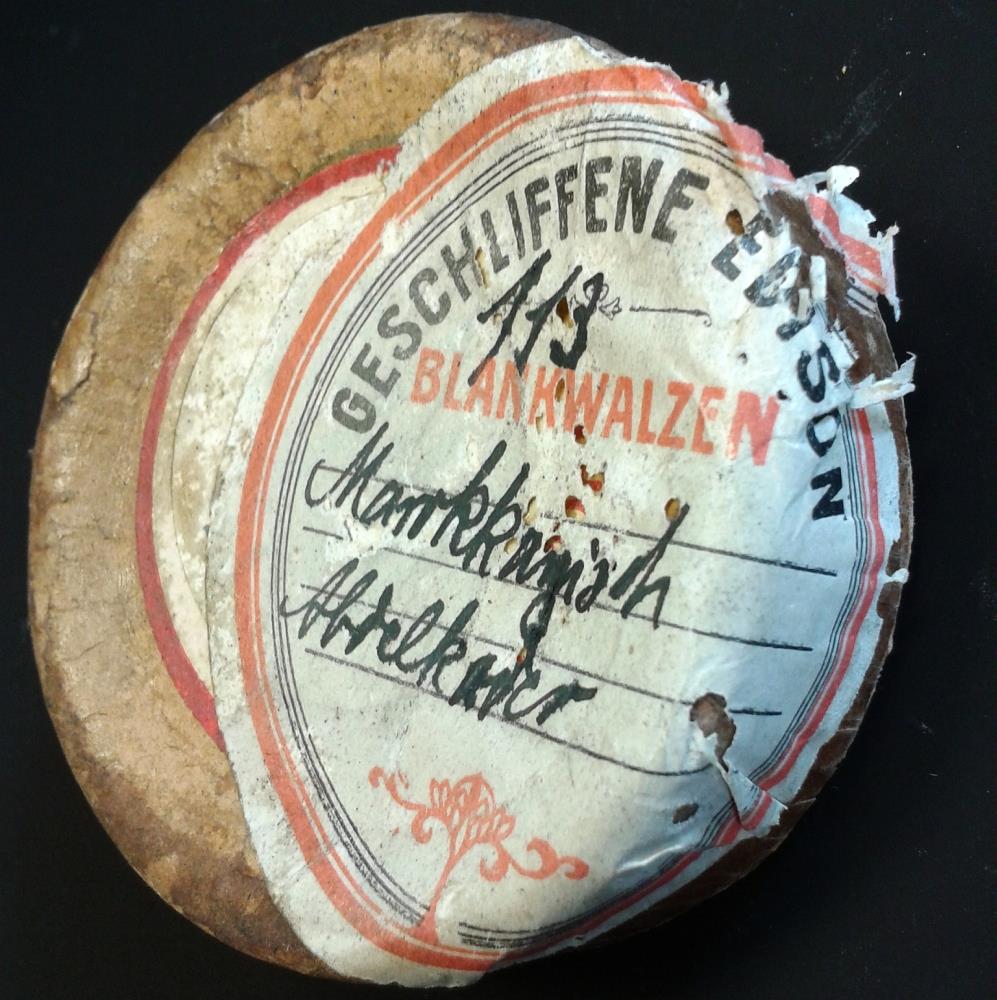 GESCHLIFFENE EDISON
113
BLANKWALZEN
Marrkkanisch
Abdelkader